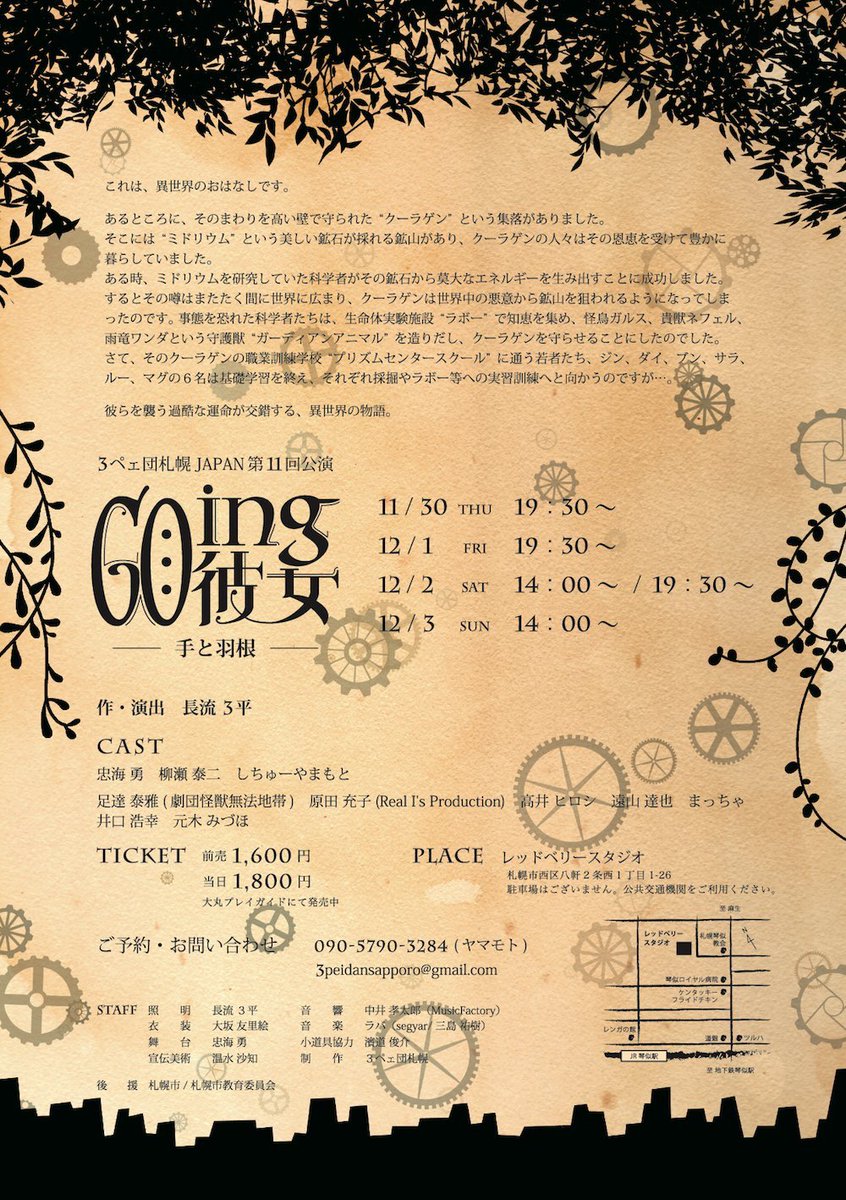 これは、異世界のおはなしです。
あるところに、そのまわりを高い壁で守られた “クーラゲン” という集落がありました。
そこには “ミドリウム” という美しい鉱石が採れる鉱山があり、クーラゲンの人々はその恩恵を受けて豊かに
暮らしていました。
ある時、ミドリウムを研究していた科学者がその鉱石から莫大なエネルギーを生み出すことに成功しました。
するとその噂はまたたく間に世界に広まり、クーラゲンは世界中の悪意から鉱山を狙われるようになってしま
ったのです。事態を恐れた科学者たちは、生命体実験施設 “ラボー” で知恵を集め、怪鳥ガルス、貴獣ネフェル、
雨竜ワンダという守護獣 “ガーディアンアニマル” を造りだし、クーラゲンを守らせることにしたのでした。
さて、そのクーラゲンの職業訓練学校 “プリズムセンタースクール” に通う若者たち、ジン、ダイ、ブン、サラ、
ルー、マグの６名は基礎学習を終え、それぞれ採掘やラボー等への実習訓練へと向かうのですが…。
彼らを襲う過酷な運命が交錯する、異世界の物語。
3ペェ団札幌 JAPAN 第11回公演
GOing
彼女
手と羽根
11 / 30 THU 19：30 ～
12 / 1 FRI 19：30 ～
12 / 2 SAT 14：00 ～ / 19：30 ～
12 / 3 SUN 14：00 ～
作・演出 長流 3平
CAST
忠海 勇 柳瀬 泰二 しちゅーやまもと
足達 泰雅 ( 劇団怪獣無法地帯 ) 原田 充子 (Real I's Production) 高井 ヒロシ 遠山 達也 まっちゃ
井口 浩幸 元木 みづほ
TICKET 前売 1,600 円
当日 1,800 円
大丸プレイガイドにて発売中
PLACE レッドベリースタジオ
札幌市西区八軒２条西１丁目1-26
駐車場はございません。公共交通機関をご利用ください。
ご予約・お問い合わせ 090-5790-3284 ( ヤマモト )
3peidansapporo@gmail.com
STAFF 照 明 長流 3平 音 響 中井 孝太郎（MusicFactory）
衣 装 大坂 友里絵 音 楽 ラバ（segyar/ 三島 祐樹）
舞 台 忠海 勇 小道具協力 濱道 俊介
宣伝美術 温水 沙知 制 作 3ペェ団札幌
後 援 札幌市 / 札幌市教育委員会
至 麻生
レッドベリー
スタジオ
札幌琴似
教会
N
琴似ロイヤル病院
ケンタッキー
フライドチキン
レンガの館
道銀
ツルハ
JR 琴似駅
至 地下鉄琴似駅